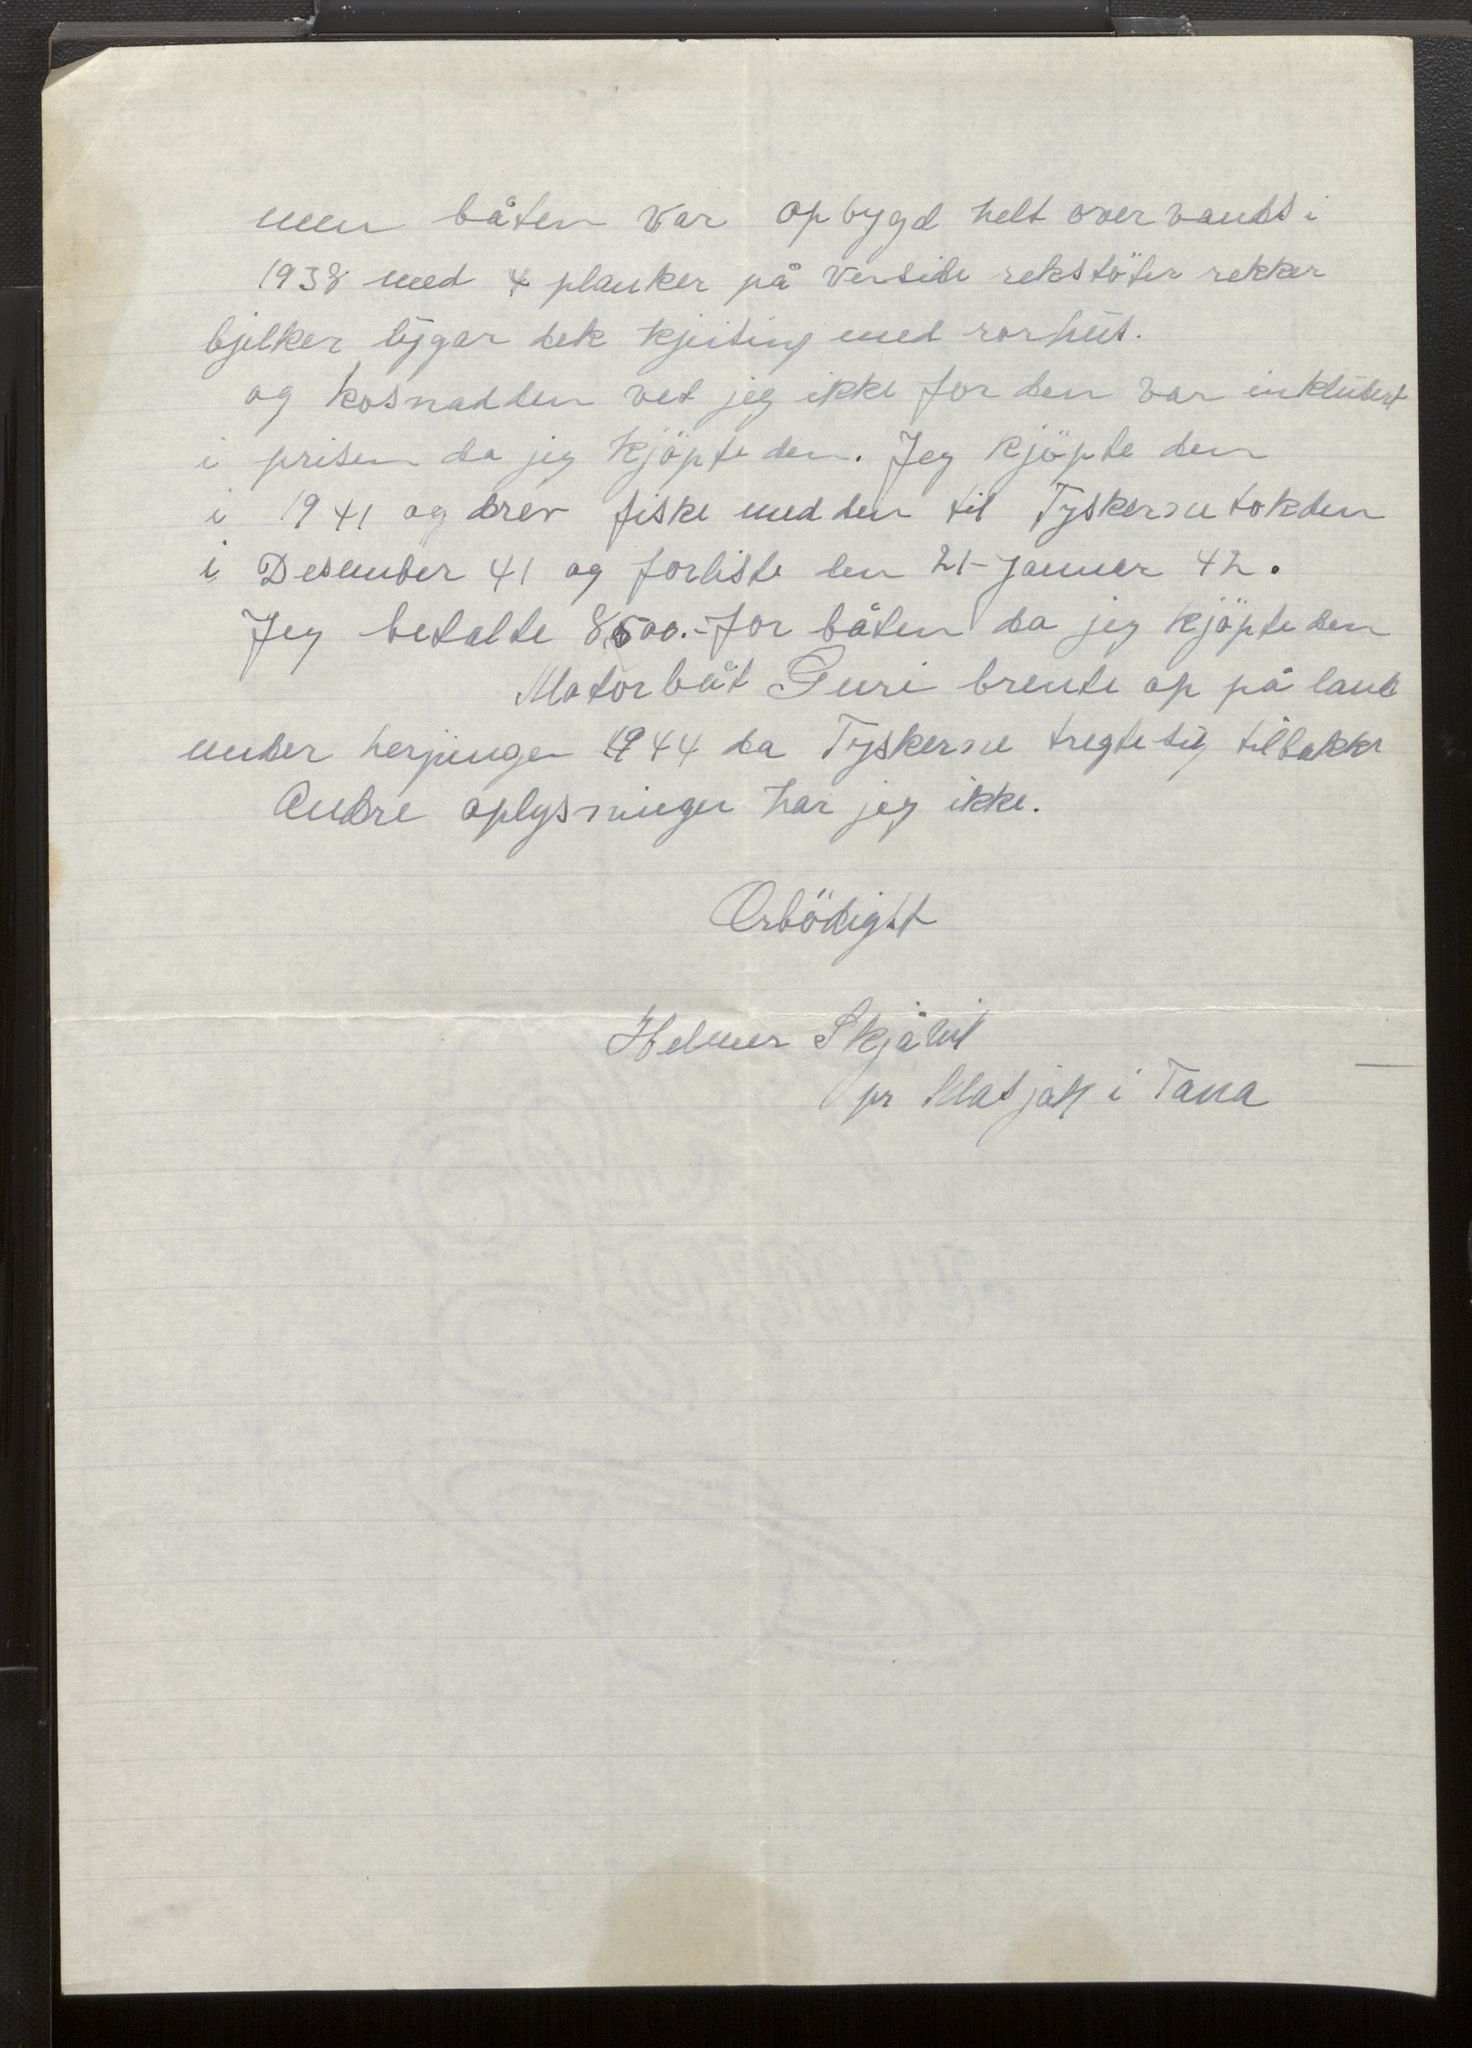 men båten var opbygd helt over vands i
1938 med 4 planker på verside rekstöter rekker
bjelker lygar dek kjising med rorhus.
og kosnadden vet jeg ikke for den var inkludert
i prisen da jeg kjöpte den. Jeg kjöpte den
i 1941 og drev fiske med den til Tyskerne tok den
i Desember 41 og forliste den 21-Januer 42.
Jeg betalte 8500.- for båten da jeg kjöpte den
Motorbåt Guri brente op på land
under herjingen 1944 da Tyskerne tregte sig tilbakke
Andre oplysninger har jeg ikke.
Ærbödigst
Helmer Skjåvik
pr Masjok i Tana